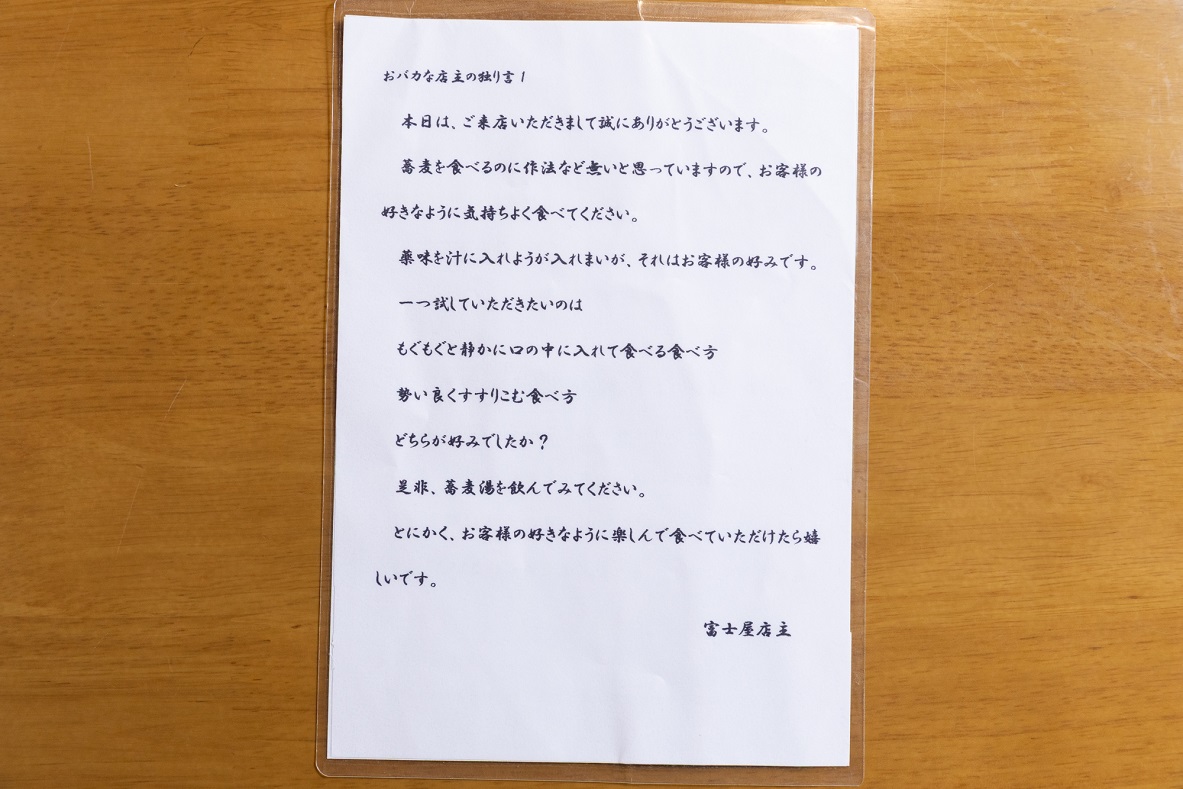 おバカな店主の独り言1
本日は、ご来店いただきまして誠にありがとうございます。
蕎麦を食べるのに作法など無いと思っていますので、お客様の
好きなように気持ちよく食べてください。
薬味を汁に入れようが入れまいが、それはお客様の好みです。
一つ試していただきたいのは
もぐもぐと静かに口の中に入れて食べる食べ方
勢い良くすすりこむ食べ方
どちらが好みでしたか？
是非、蕎麦湯を飲んでみてください。
とにかく、お客様の好きなように楽しんで食べていただけたら嬉
しいです。
富士屋店主